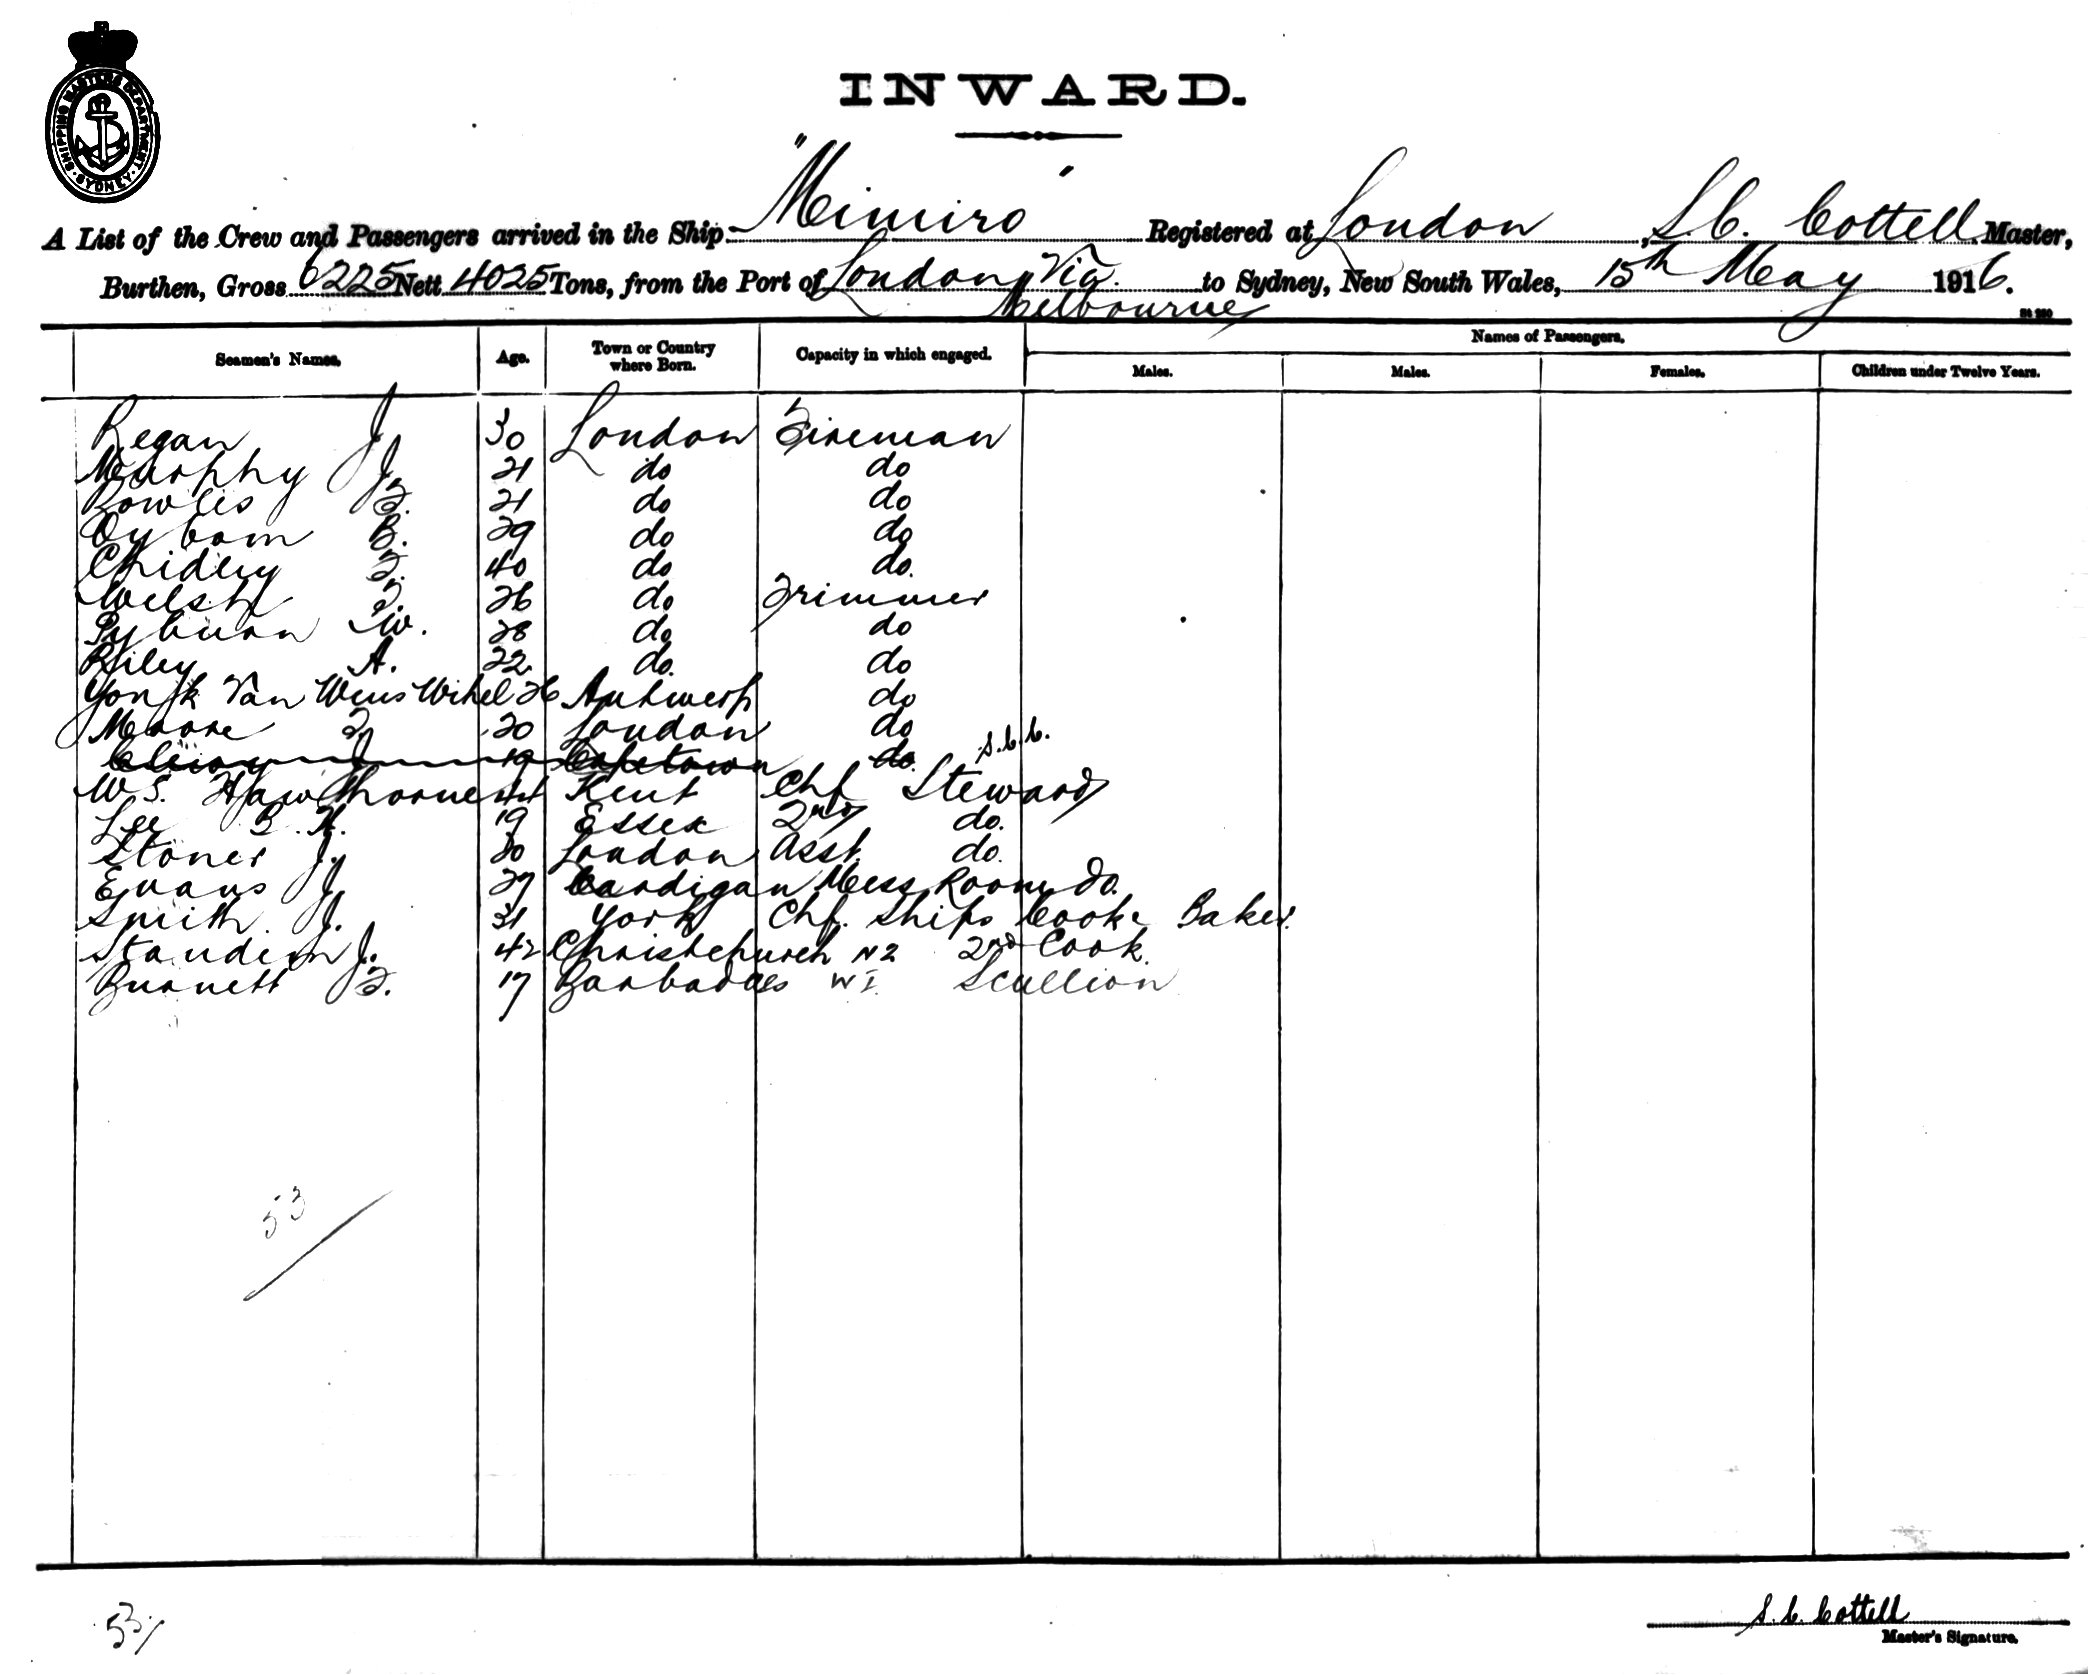 SHIPPING MASTERS DEPARTMENT · SYDNEY ·
INWARD.
A List of the Crew and Passengers arrived in the Ship "Mimiro" Registered at London, S. C. Cottell Master,
Burthen, Gross 6225 Nett 4025 Tons, from the Port of London Via Melbourne to Sydney, New South Wales, 15th May 1916.
Names of Passengers.
Seamen's Names. Age. Town or Country where Born. Capacity in which engaged. Males. Males. Females. Children under Twelve Years.
Regan J. 30 London Fireman
Murphy J. 21 do do
Bowles F. 21 do do
B. 29 do do
Chidley F. 40 do do.
Welsh 26 do Trimmer
Pyburn W. 28 do do
Riley A. 22 do. do
Van 26 Antwerp do
Moore 20 London do
J 19 Capetown do. S.C.C.
W S. Hawthorne 44 Kent Chf Steward
Lee B. H. 19 Essex 2nd do.
Stoner J. 30 London Asst. do.
Evans J. 27 Cardigan Mess Room do.
Smith J. 31 York Chf. Ships Cook & Baker.
Standen J. 42 Christchurch N Z 2nd Cook.
Burnett F. 17 Barbadoes W I. Scullion
53
53/
S. C. Cottell
Master's Signature.